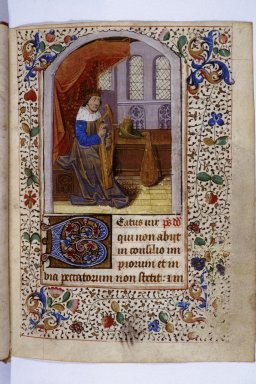 Beatus vir ps dd
qui non abijt
in consilio im
piorum et in
via peccatorum non stetit: i m